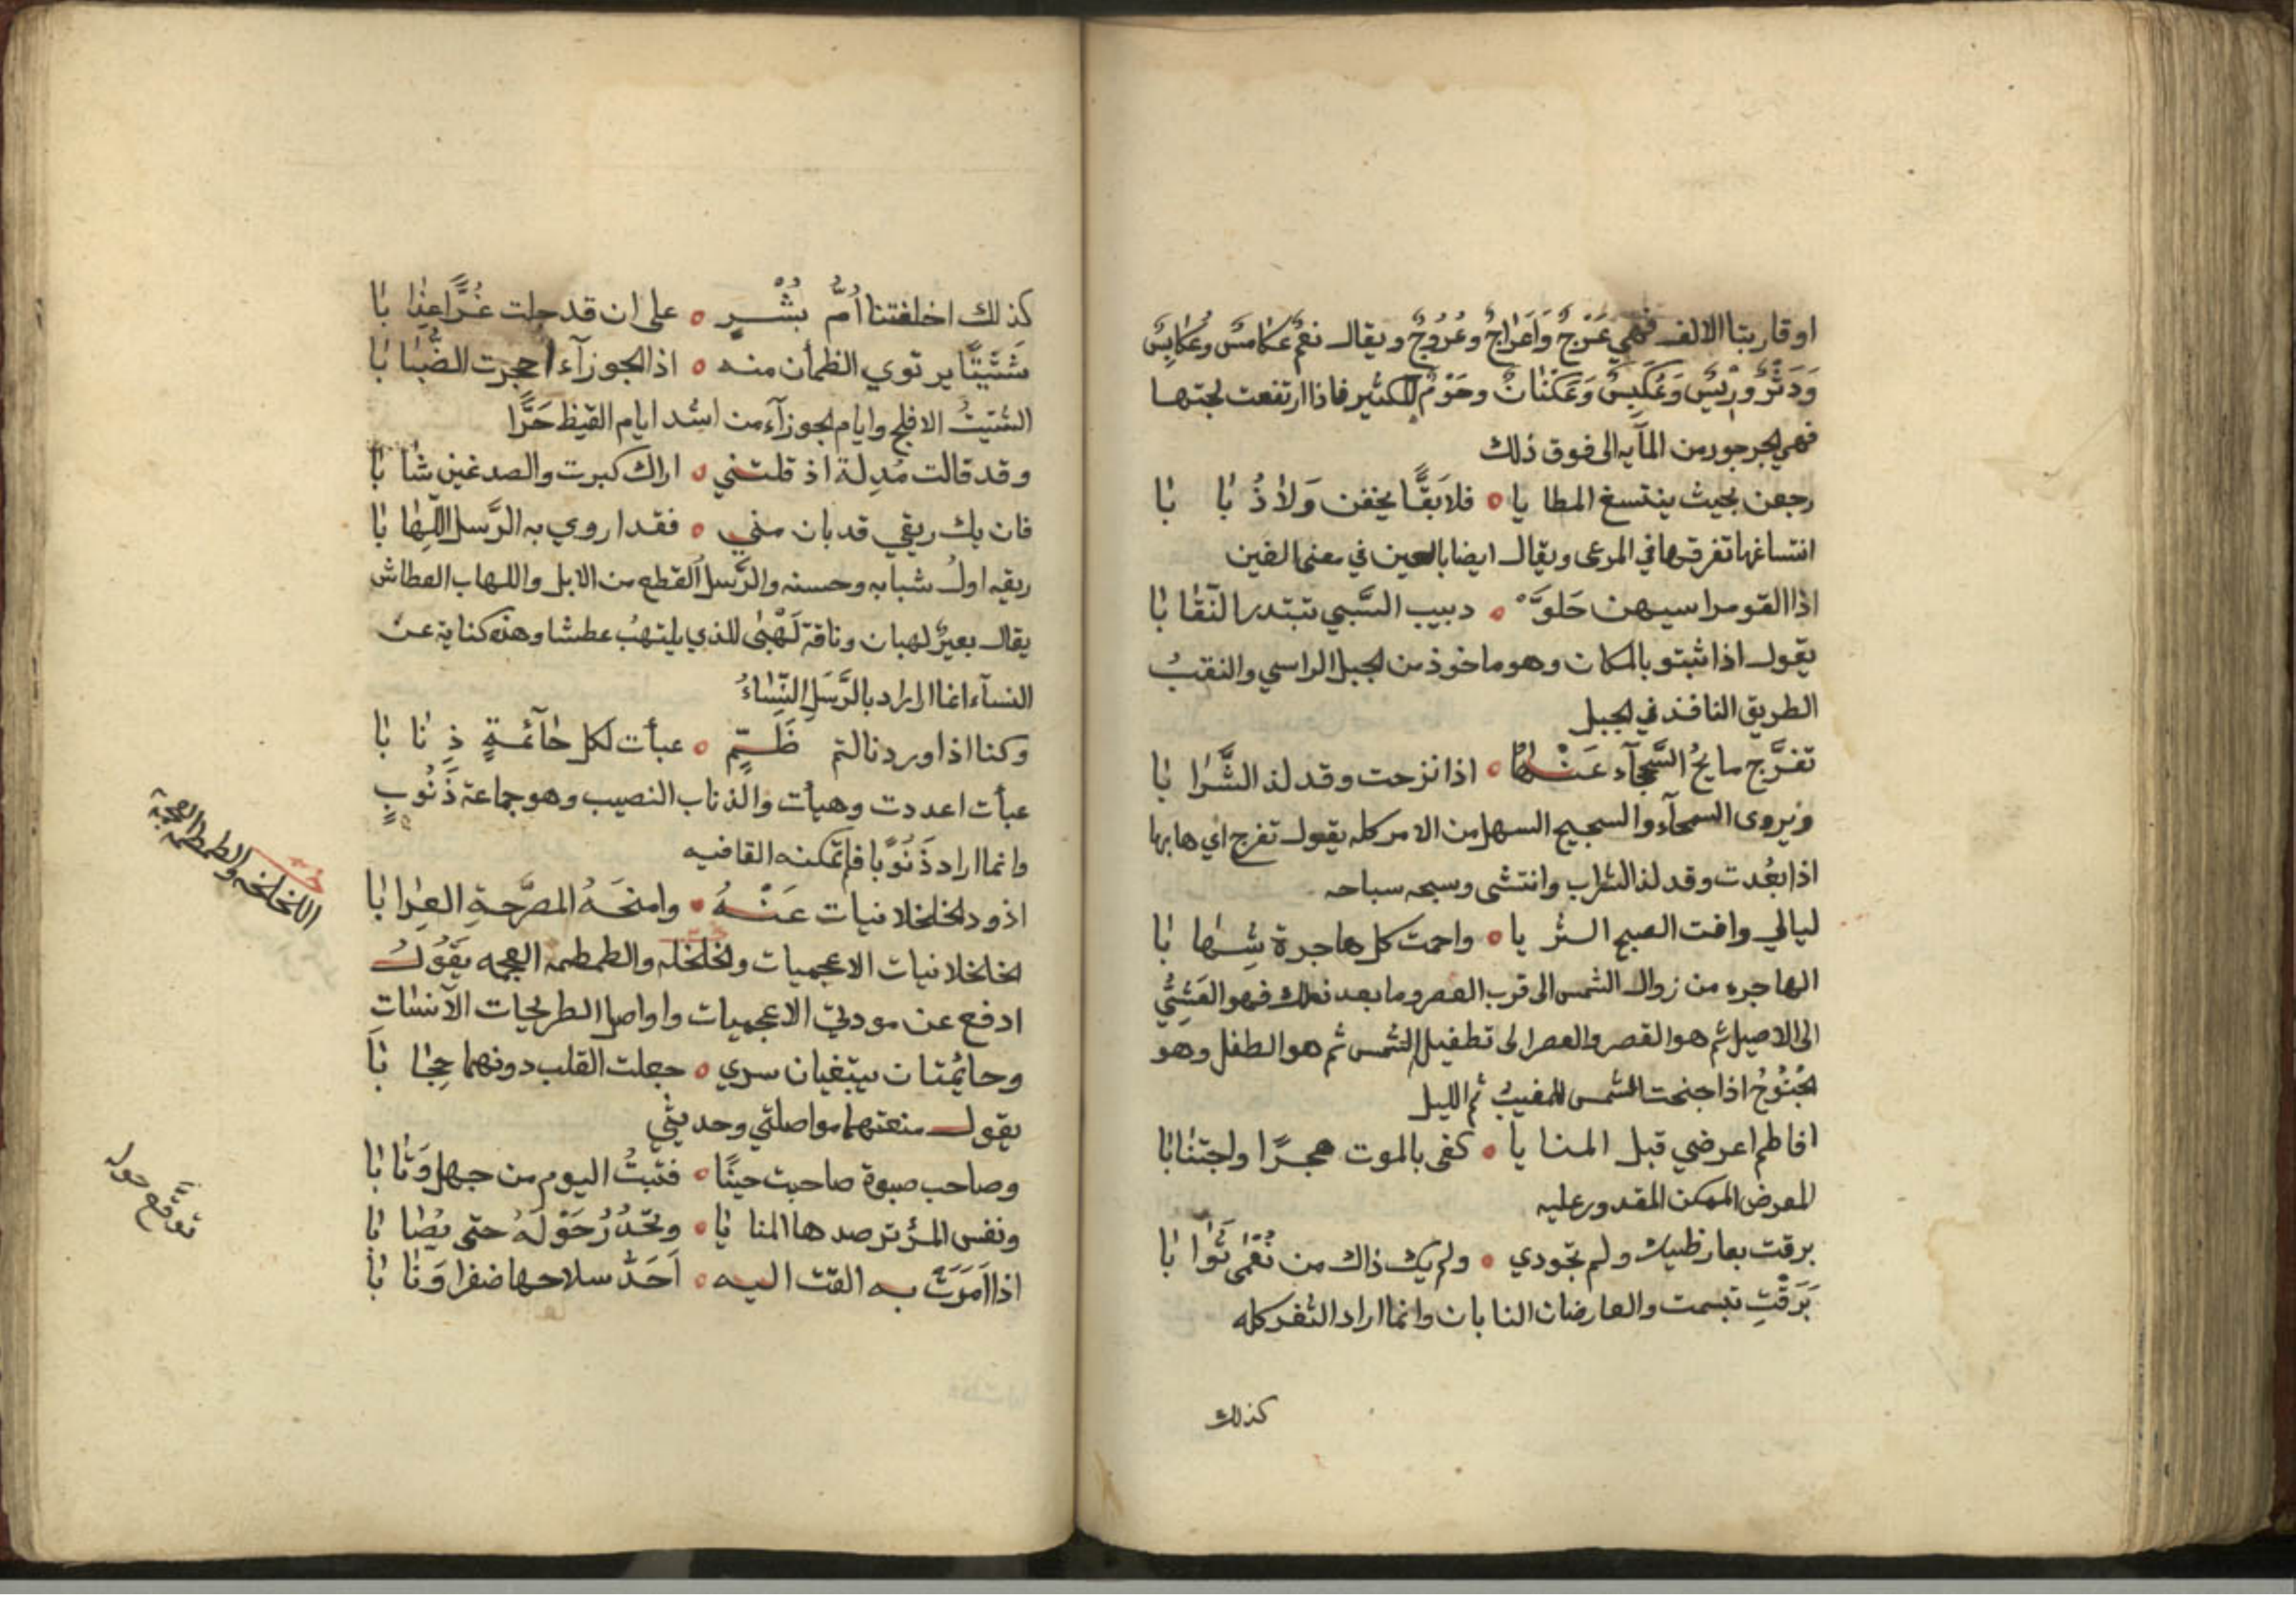 او قاربتا الالف فهي عَرْجٌ وَاَعْرَاجٌ وعُرُوجٌ ويقال نعم عُكَامسٌ وعُكَابِسٌ
وَدَثْرٌ وَعَكَنَانٌ وحَوْمٌ للكثير فاذا ارتفعت لجتها
فهي الجرجور من المآيه الى فوق ذلك
رجعن بحيث ينتسغ المطا يا ه فلا بَقًّا يخفن وَلا ذُ بَا بَا
انتساغها تفرقها في المرعى ويقال ايضا بالعين في معنى الغين
اذا القو مراسيهن حَلوَّ ه دبيب السَّبي تبتدر النّقا بَا
يقول اذا ثبتو بالمكان وهو ماخوذ من الجبل الراسي والنقبُ
الطريق النافذ في الجبل
تفرَّج مايحُ السَّجحآء عَنْهَا ه اذا نزحت وقد لذ الشَّرَا بَا
ويروى السمحآء والسجيح السهل من الامر كله يقول تفرج اي هابها
اذا بعُدت وقد لذ الشراب وانتشى وسبحه سباحه
ليالي وافت الصبح الثر يا ه واحمت كل هاجرة شِهَا بَا
الهاجره من زوال الشمس الى قرب العصر وما بعد ذلك فهو العَشِيّ
الى الاصيل ثم هو القصر والعصر الى تطفيل الشمس ثم هو الطفل وهو
الجُنُوحُ اذا جنحت الشمس للمغيب ثم الليل
افاطم اعرضي قبل المنا يا ه كفى بالموت هجرًا واجتنابَا
المعرض الممكن المقدور عليه
برقت بعارظيك ولم تجودي ه ولم يك ذاك من نُعْمَى ثَوَا بَا
بَرَقْتِ تبسمت والعارضان النابان وانما اراد الثغر كله
كذلك
كذلك اخلفتنا اُمُّ بُشْرٍ ه على ان قد جلت غُرًّا عِذَا بَا
شَتَيِتًا يرتوي الظمأن منه ه اذا الجوزآء احجرت الضَّبَا بَا
الشتيتُ الافلج وايام الجوزآء من اشد ايام القيظ حَرًّا
وقد قالت مُدِلة اذ قلتني ه اراك كبرت والصدغين شا بَا
فان يك ريقي قد بان مني ه فقد اروي به الرَّسل اللِّهَا بَا
ريقه اولُ شبابه وحسنه والرَّسل القطع من الابل واللهاب العطاش
يقال بعيرٌ لهبان وناقة لَهْبَى للذي يلتهبُ عطشا وهذه كناية عن
النسآء انما اراد بالرَّسَلِ النِّسَاءُ
وكنا اذا اوردنا لتم ظَمٍّ ه عبأت لكل حَآئمةٍ ذِ نَا بَا
عبأت اعددت وهيأت والذناب النصيب وهو جماعة ذَنُوبٍ
وانما اراد ذَنُوبًا فلم تمكنه القافيه
اذود الخلخلانيات عَنْهُ ه وامنحَهُ المصَرَّحةِ العِرَا بَا
الخلخلانيات الاعجميات والخلخله والطمطمه العجمه يقولُ
ادفع عن مودتي الاعجميات واواصل الطريحيات الآنسات
وحائمتان يبتغيان سري ه جعلت القلب دونهما حِجَا بَا
يقول منعتهما مواصلتي وحديثي
وصاحب صبوة صاحبت حينًا ه فتبتُ اليوم من جهل وَتَا بَا
ونفس المرؤ ترصدها المنا يَا ه وتَحْدُرُ حَوْلَهُ حتى يُصَا بَا
اذا اَمَرَتْ به القت اليه ه اَحَدَّ سلاحها ضفرا وَنَا بَا
اللخلخه والطمطمه العجمة